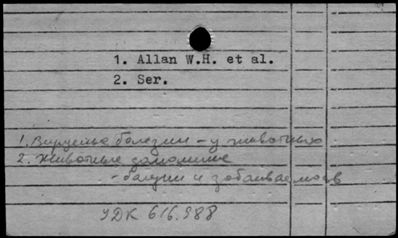 1. Allan W.H. et al.
2. Ser.
1. Вирусные болезни - у животных
2. Животные домашние
- болезни и
УДК 616.988